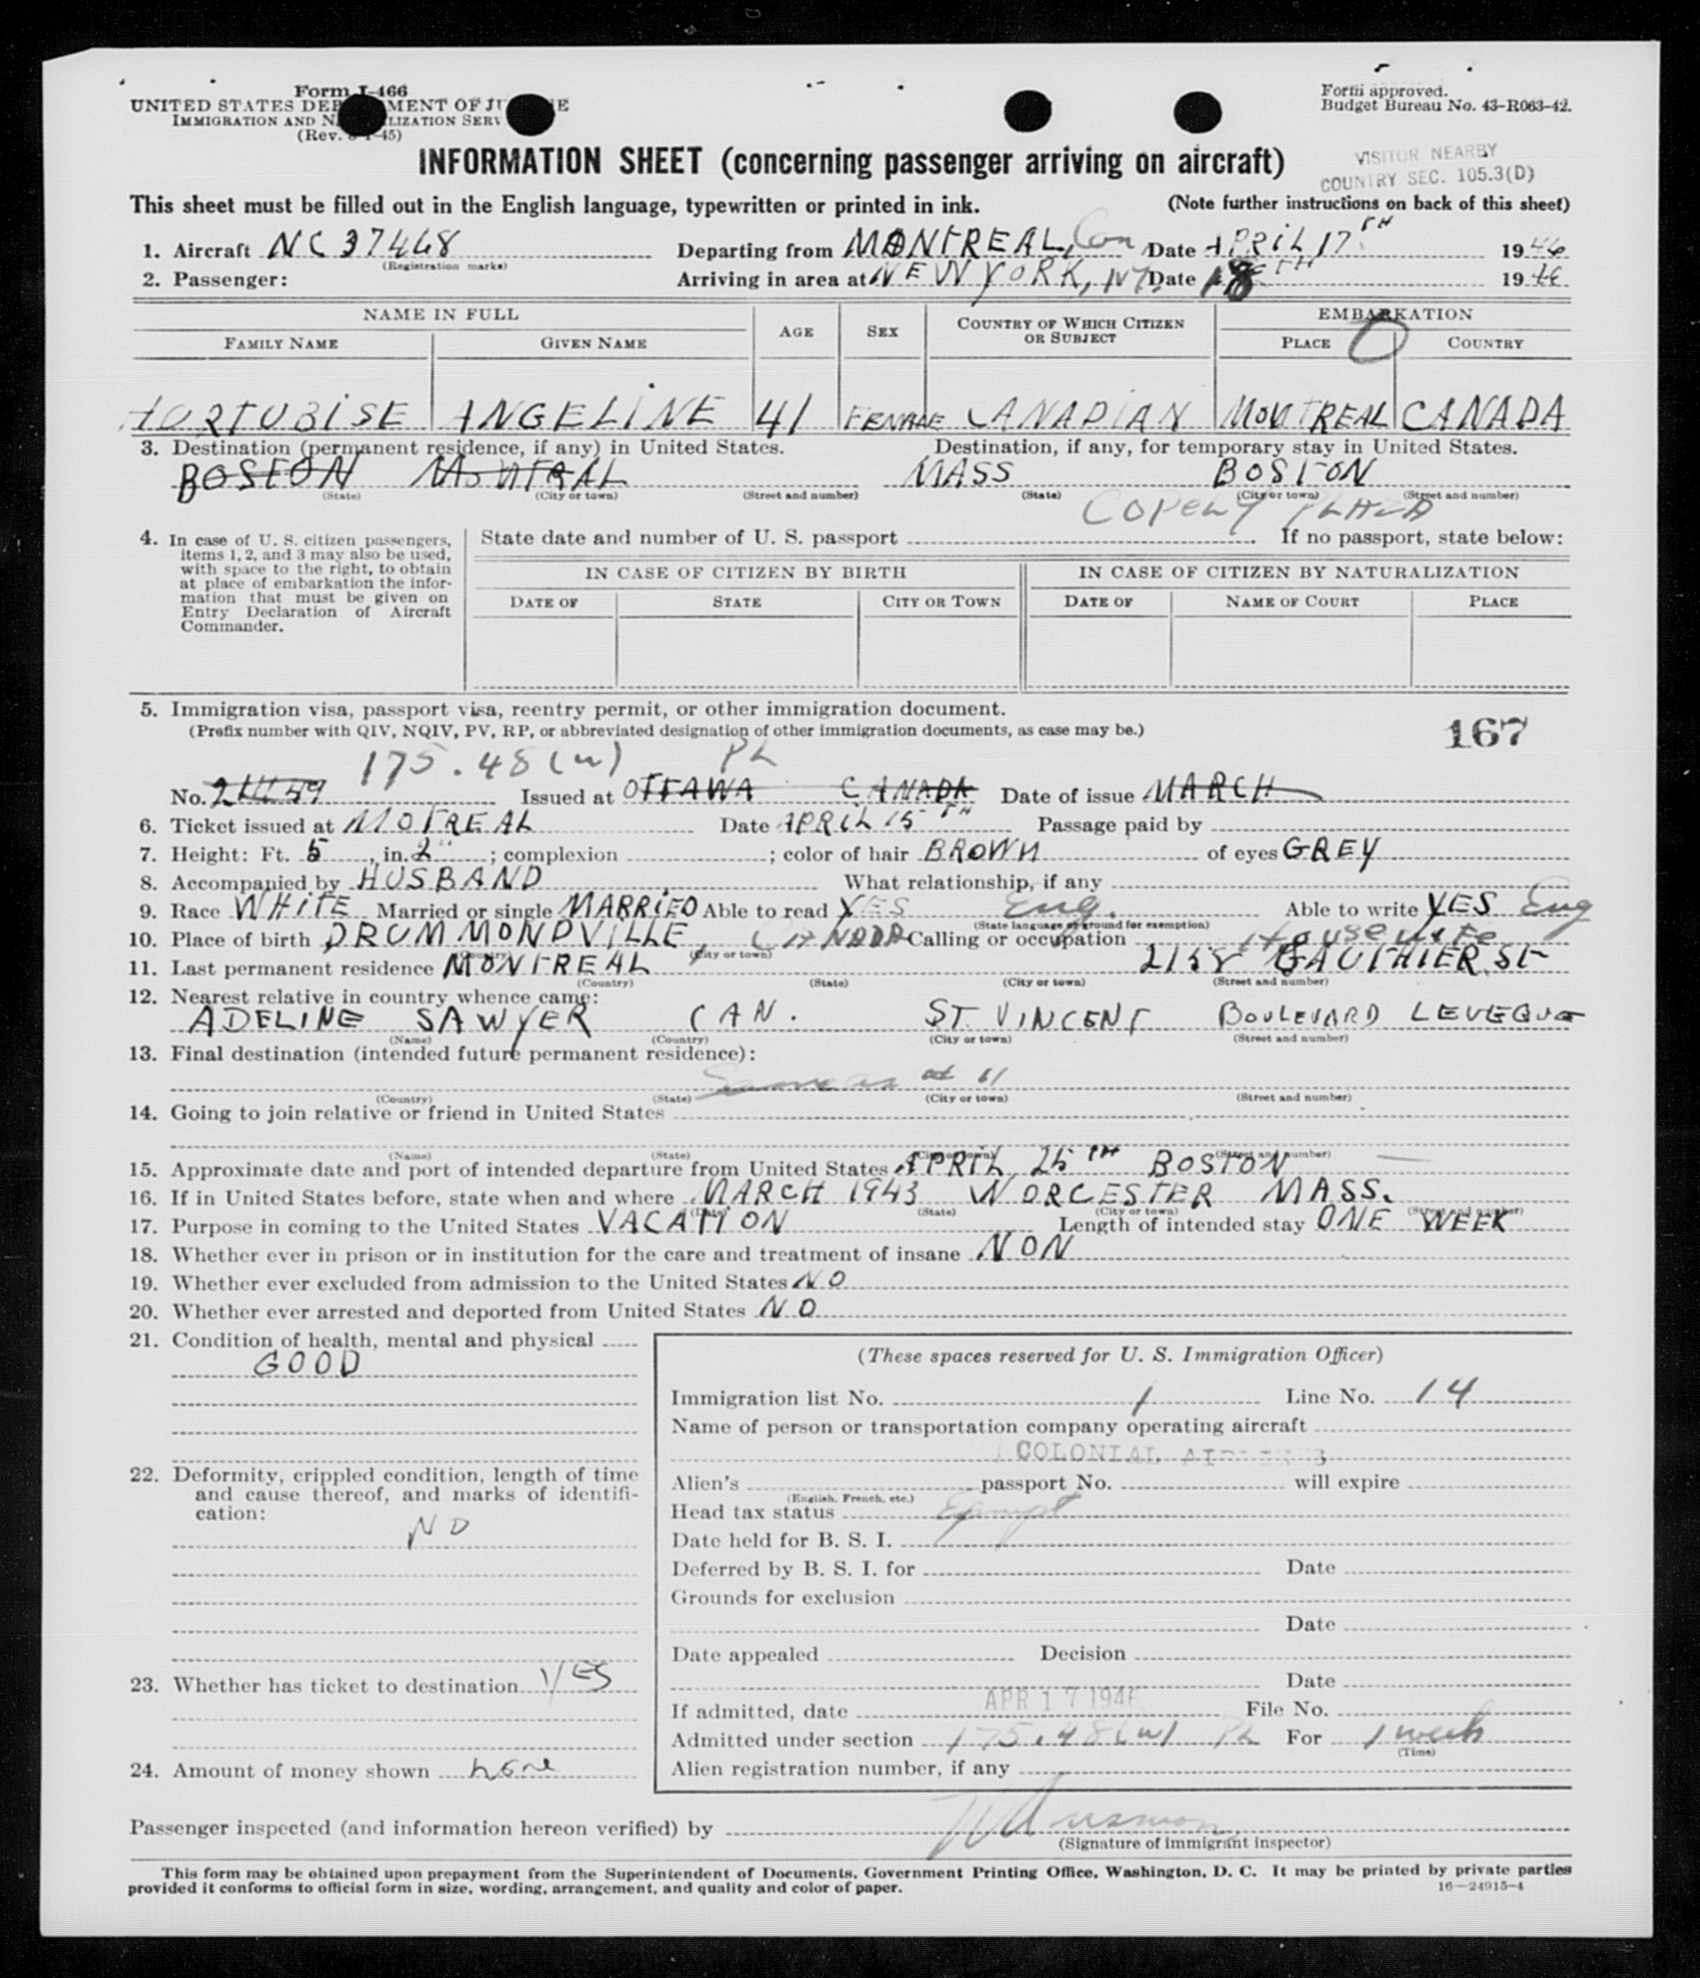 Form I-466
UNITED STATES DEPARTMENT OF JUSTICE
IMMIGRATION AND NATURALIZATION SERV
(Rev. -45)
Form approved.
Budget Bureau No. 43-R063-42.
INFORMATION SHEET (concerning passenger arriving on aircraft)
VISITOR NEARBY
COUNTRY SEC. 105.3(D)
This sheet must be filled out in the English language, typewritten or printed in ink. (Note further instructions on back of this sheet)
1. Aircraft NC 37468 Departing from MONTREAL, Can Date APRIL 17TH 1946
(Registration marks)
2. Passenger: Arriving in area at NEW YORK, NY. Date 18TH 1946
NAME IN FULL AGE SEX COUNTRY OF WHICH CITIZEN OR SUBJECT EMBARKATION
FAMILY NAME GIVEN NAME PLACE COUNTRY
HORTUBISE ANGELINE 41 FEMALE CANADIAN MONTREAL CANADA
3. Destination (permanent residence, if any) in United States. Destination, if any, for temporary stay in United States.
BOSTON MONTRAL MASS BOSTON
(State) (City or town) (Street and number) (State) (City or town) (Street and number)
COPELY PLAZA
4. In case of U. S. citizen passengers, items 1, 2, and 3 may also be used, with space to the right, to obtain at place of embarkation the information that must be given on Entry Declaration of Aircraft Commander.
State date and number of U. S. passport If no passport, state below:
IN CASE OF CITIZEN BY BIRTH IN CASE OF CITIZEN BY NATURALIZATION
DATE OF STATE CITY OR TOWN DATE OF NAME OF COURT PLACE
5. Immigration visa, passport visa, reentry permit, or other immigration document.
(Prefix number with QIV, NQIV, PV, RP, or abbreviated designation of other immigration documents, as case may be.)
167
175.48 (w) PL
No. Issued at OTTAWA CANADA Date of issue MARCH
6. Ticket issued at MOTREAL Date APRIL 15TH Passage paid by
7. Height: Ft. 5, in. 2"; complexion ; color of hair BROWN of eyes GREY
8. Accompanied by HUSBAND What relationship, if any
9. Race WHITE Married or single MARRIED Able to read YES Eng. Able to write YES Eng
(State language or ground for exemption)
10. Place of birth DRUMMONDVILLE, CANADA Calling or occupation Housewife
(City or town)
11. Last permanent residence MONTREAL 2158 GAUTHIER ST
(Country) (State) (City or town) (Street and number)
12. Nearest relative in country whence came:
ADELINE SAWYER CAN. ST. VINCENT BOULEVARD LEVEQUE
(Name) (Country) (City or town) (Street and number)
13. Final destination (intended future permanent residence):
Same as at 11
(Country) (State) (City or town) (Street and number)
14. Going to join relative or friend in United States
(Name) (State) (City or town) (Street and number)
15. Approximate date and port of intended departure from United States APRIL 25TH BOSTON
16. If in United States before, state when and where MARCH 1943 WORCESTER MASS.
(Date) (State) (City or town) (Street and number)
17. Purpose in coming to the United States VACATION Length of intended stay ONE WEEK
18. Whether ever in prison or in institution for the care and treatment of insane NON
19. Whether ever excluded from admission to the United States NO
20. Whether ever arrested and deported from United States NO
21. Condition of health, mental and physical
GOOD
22. Deformity, crippled condition, length of time and cause thereof, and marks of identification:
NO
23. Whether has ticket to destination YES
24. Amount of money shown none
(These spaces reserved for U. S. Immigration Officer)
Immigration list No. 1 Line No. 14
Name of person or transportation company operating aircraft
COLONIAL AIRLINES
Alien's passport No. will expire
(English, French, etc.)
Head tax status Exempt
Date held for B. S. I.
Deferred by B. S. I. for Date
Grounds for exclusion
Date
Date appealed Decision
Date
If admitted, date APR 17 1946 File No.
Admitted under section 175.48 (w) PL For 1 week
(Time)
Alien registration number, if any
Passenger inspected (and information hereon verified) by
(Signature of immigrant inspector)
This form may be obtained upon prepayment from the Superintendent of Documents, Government Printing Office, Washington, D. C. It may be printed by private parties
provided it conforms to official form in size, wording, arrangement, and quality and color of paper.
16—24915-4